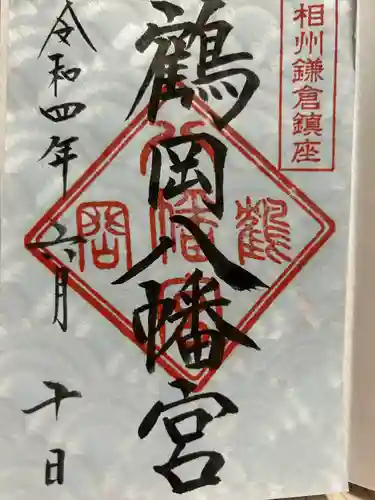 相州鎌倉鎮座
鶴岡八幡宮
鶴岡八幡宮
令和四年六月十日